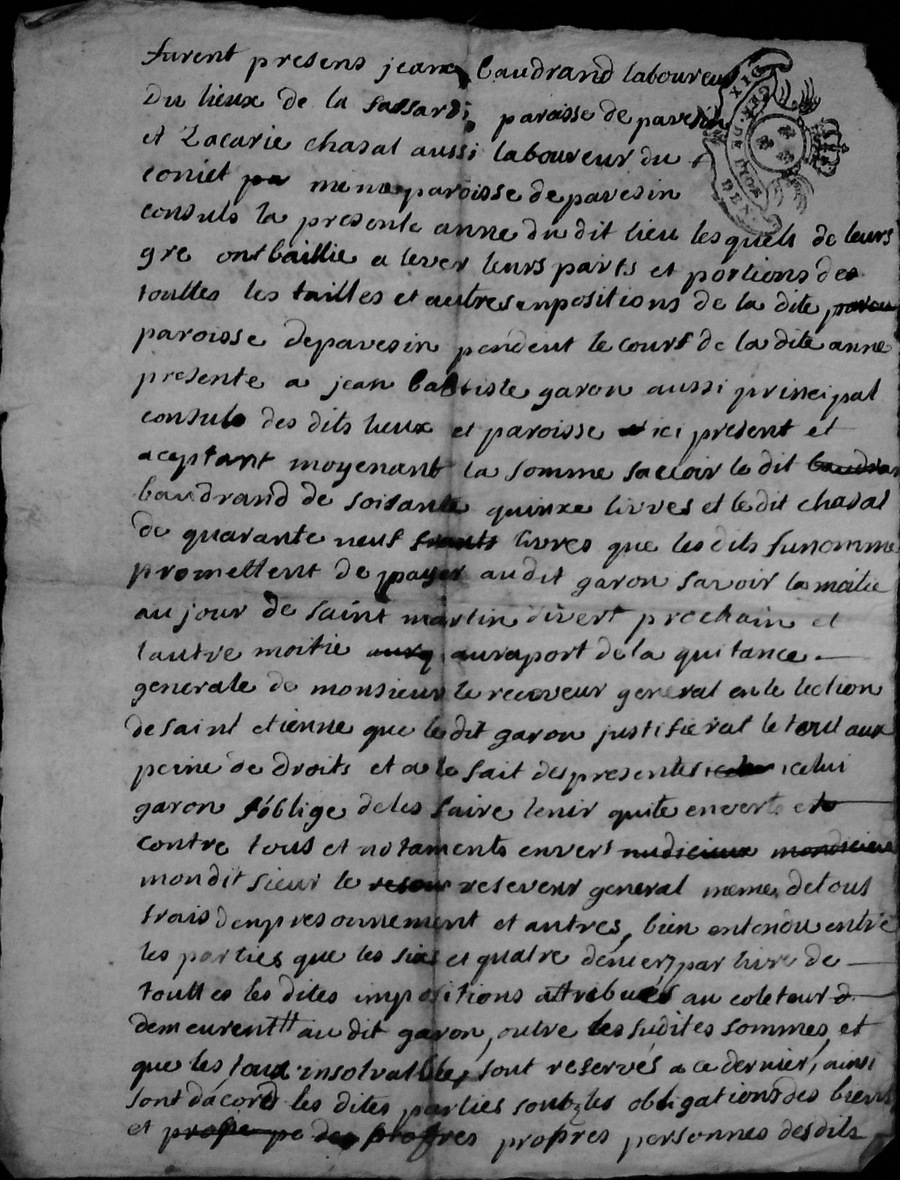 furent presens jean baudrand laboureur
du lieux de la sassardi, paroisse de pavesin
et Zacarie chasal aussi laboureur du
coniet meme paroisse de pavesin
consuls la presente anne du dit lieu les quels de leurs
gre ont baillie a lever leurs parts et portions des
touttes les tailles et autres enpositions de la dite
paroisse de pavesin pendent le cours de la dite anne
presente a jean baptiste garon aussi principal
consuls des dits lieux et paroisse ici present et
aceptant moyenant la somme savoir le dit baudran
baudrand de soisante quinxe livres et le dit chasal
de quarante neuf livres que les dits sunomme
promettent de payer au dit garon savoir la moitie
au jour de saint martin divert prochain et
lautre moitie au raport de la quitance
generale de monsieur le receveur general en le lection
de saint etienne que le dit garon justifierat le tout aux
peine de droits et a le fait des presentes icelui
garon s'oblige de les faire tenir quite envert et
contre tous et notaments envert
mondit sieur le resevenr general meme de tous
frais denpresonnement et autres, bien entendu entre
les parties que les six et quatre deniers par livre de
touttes les dites impositions attribués au coleteur
demeurentt au dit garon, outre les sudites sommes, et
que les taux insolvables, sont reservés a ce dernier, ainsi
sont dácord les dites parties soubz les obligations des biens
et propres personnes des dits
DIX
GEN. DE LYON
DEN.